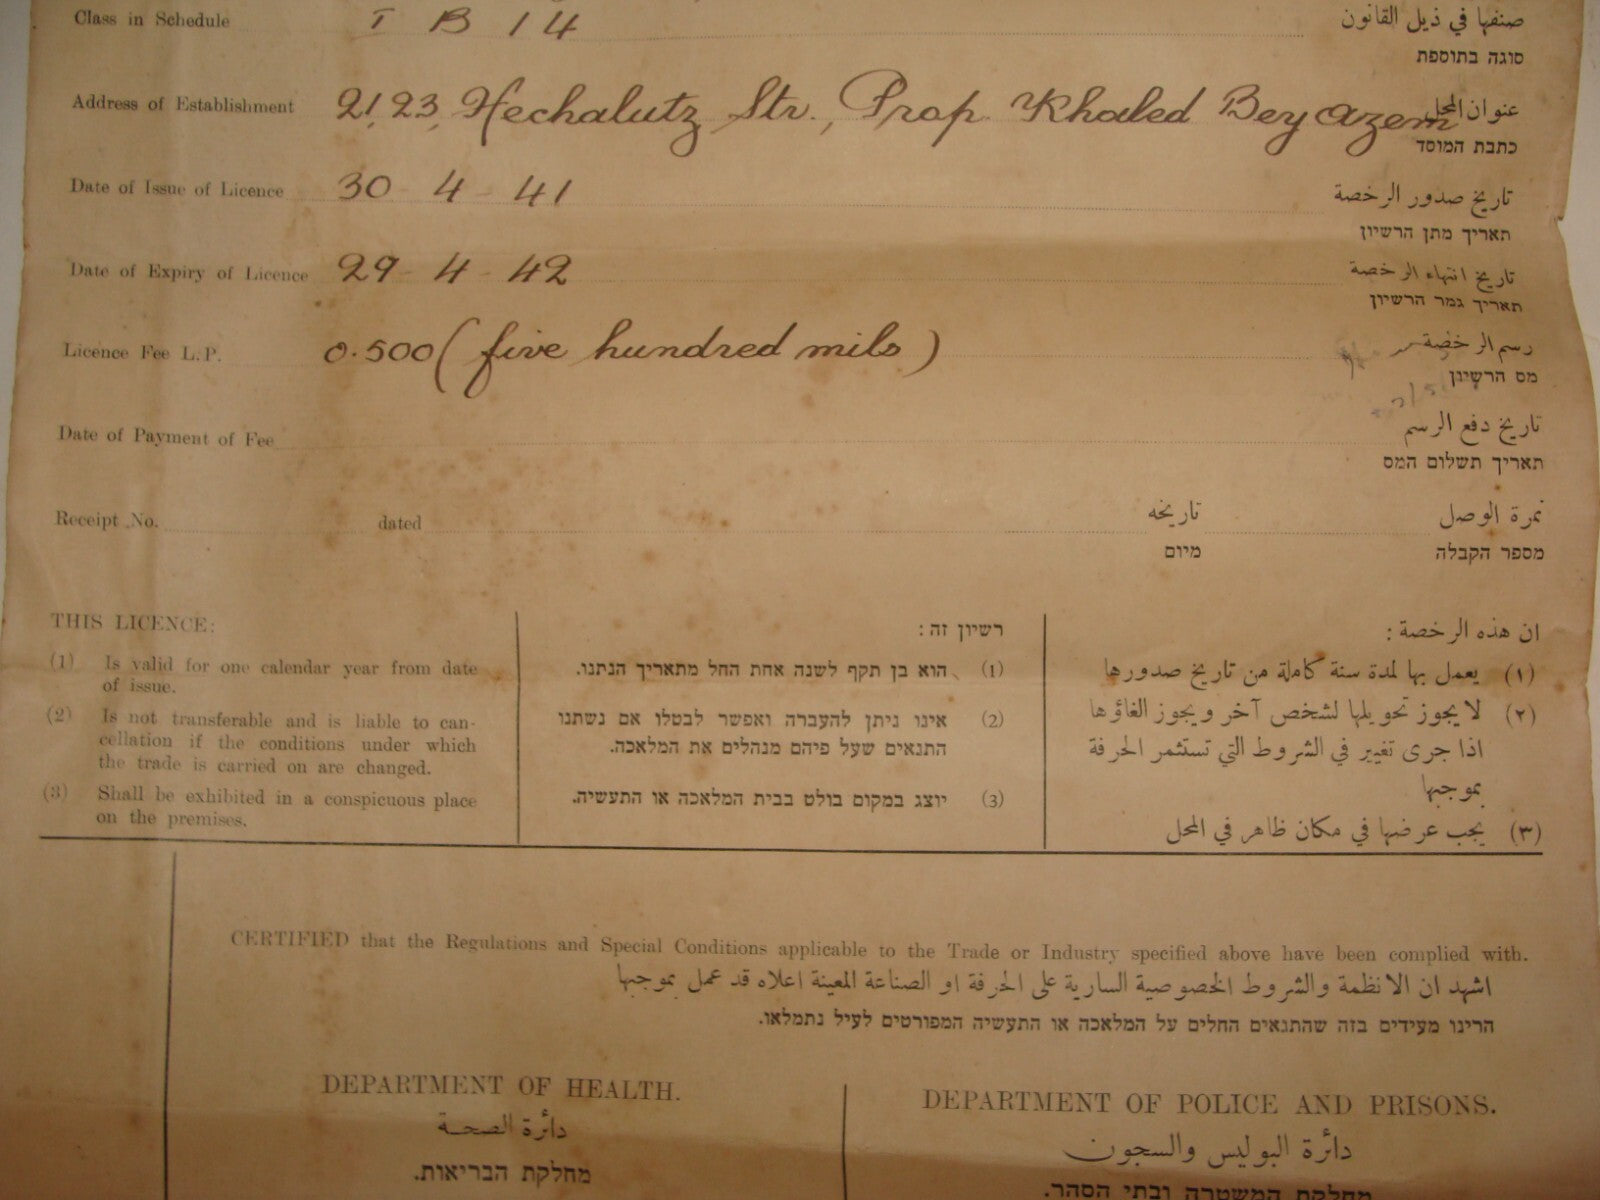 Class in Schedule I B 14 صنفها في ذيل القانون
סוגה בתוספת
Address of Establishment 21, 23, Hechalutz Str., Prop. Khaled Bey Azem عنوان المحل
כתבת המוסד
Date of Issue of Licence 30 - 4 - 41 تاريخ صدور الرخصة
תאריך מתן הרשיון
Date of Expiry of Licence 29 - 4 - 42 تاريخ انتهاء الرخصة
תאריך גמר הרשיון
Licence Fee L.P. 0.500 (five hundred mils) رسم الرخصة
מס הרשיון
Date of Payment of Fee تاريخ دفع الرسم
תאריך תשלום המס
Receipt No. dated تاريخه نمرة الوصل
מיום מספר הקבלה
THIS LICENCE:
(1) Is valid for one calendar year from date
of issue.
(2) Is not transferable and is liable to can-
cellation if the conditions under which
the trade is carried on are changed.
(3) Shall be exhibited in a conspicuous place
on the premises.
רשיון זה:
(1) הוא בן תקף לשנה אחת החל מתאריך הנתנו.
(2) אינו ניתן להעברה ואפשר לבטלו אם נשתנו
התנאים שעל פיהם מנהלים את המלאכה.
(3) יוצג במקום בולט בבית המלאכה או התעשיה.
ان هذه الرخصة:
(١) يعمل بها لمدة سنة كاملة من تاريخ صدورها
(٢) لا يجوز تحويلها لشخص آخر ويجوز الغاؤها
اذا جرى تغيير في الشروط التي تستثمر الحرفة
بموجبها
(٣) يجب عرضها في مكان ظاهر في المحل
CERTIFIED that the Regulations and Special Conditions applicable to the Trade or Industry specified above have been complied with.
اشهد ان الانظمة والشروط الخصوصية السارية على الحرفة او الصناعة المعينة اعلاه قد عمل بموجبها
הרינו מעידים בזה שהתנאים החלים על המלאכה או התעשיה המפורטים לעיל נתמלאו.
DEPARTMENT OF HEALTH.
دائرة الصحة
מחלקת הבריאות.
DEPARTMENT OF POLICE AND PRISONS.
دائرة البوليس والسجون
מחלקת המשטרה ובתי הסהר.